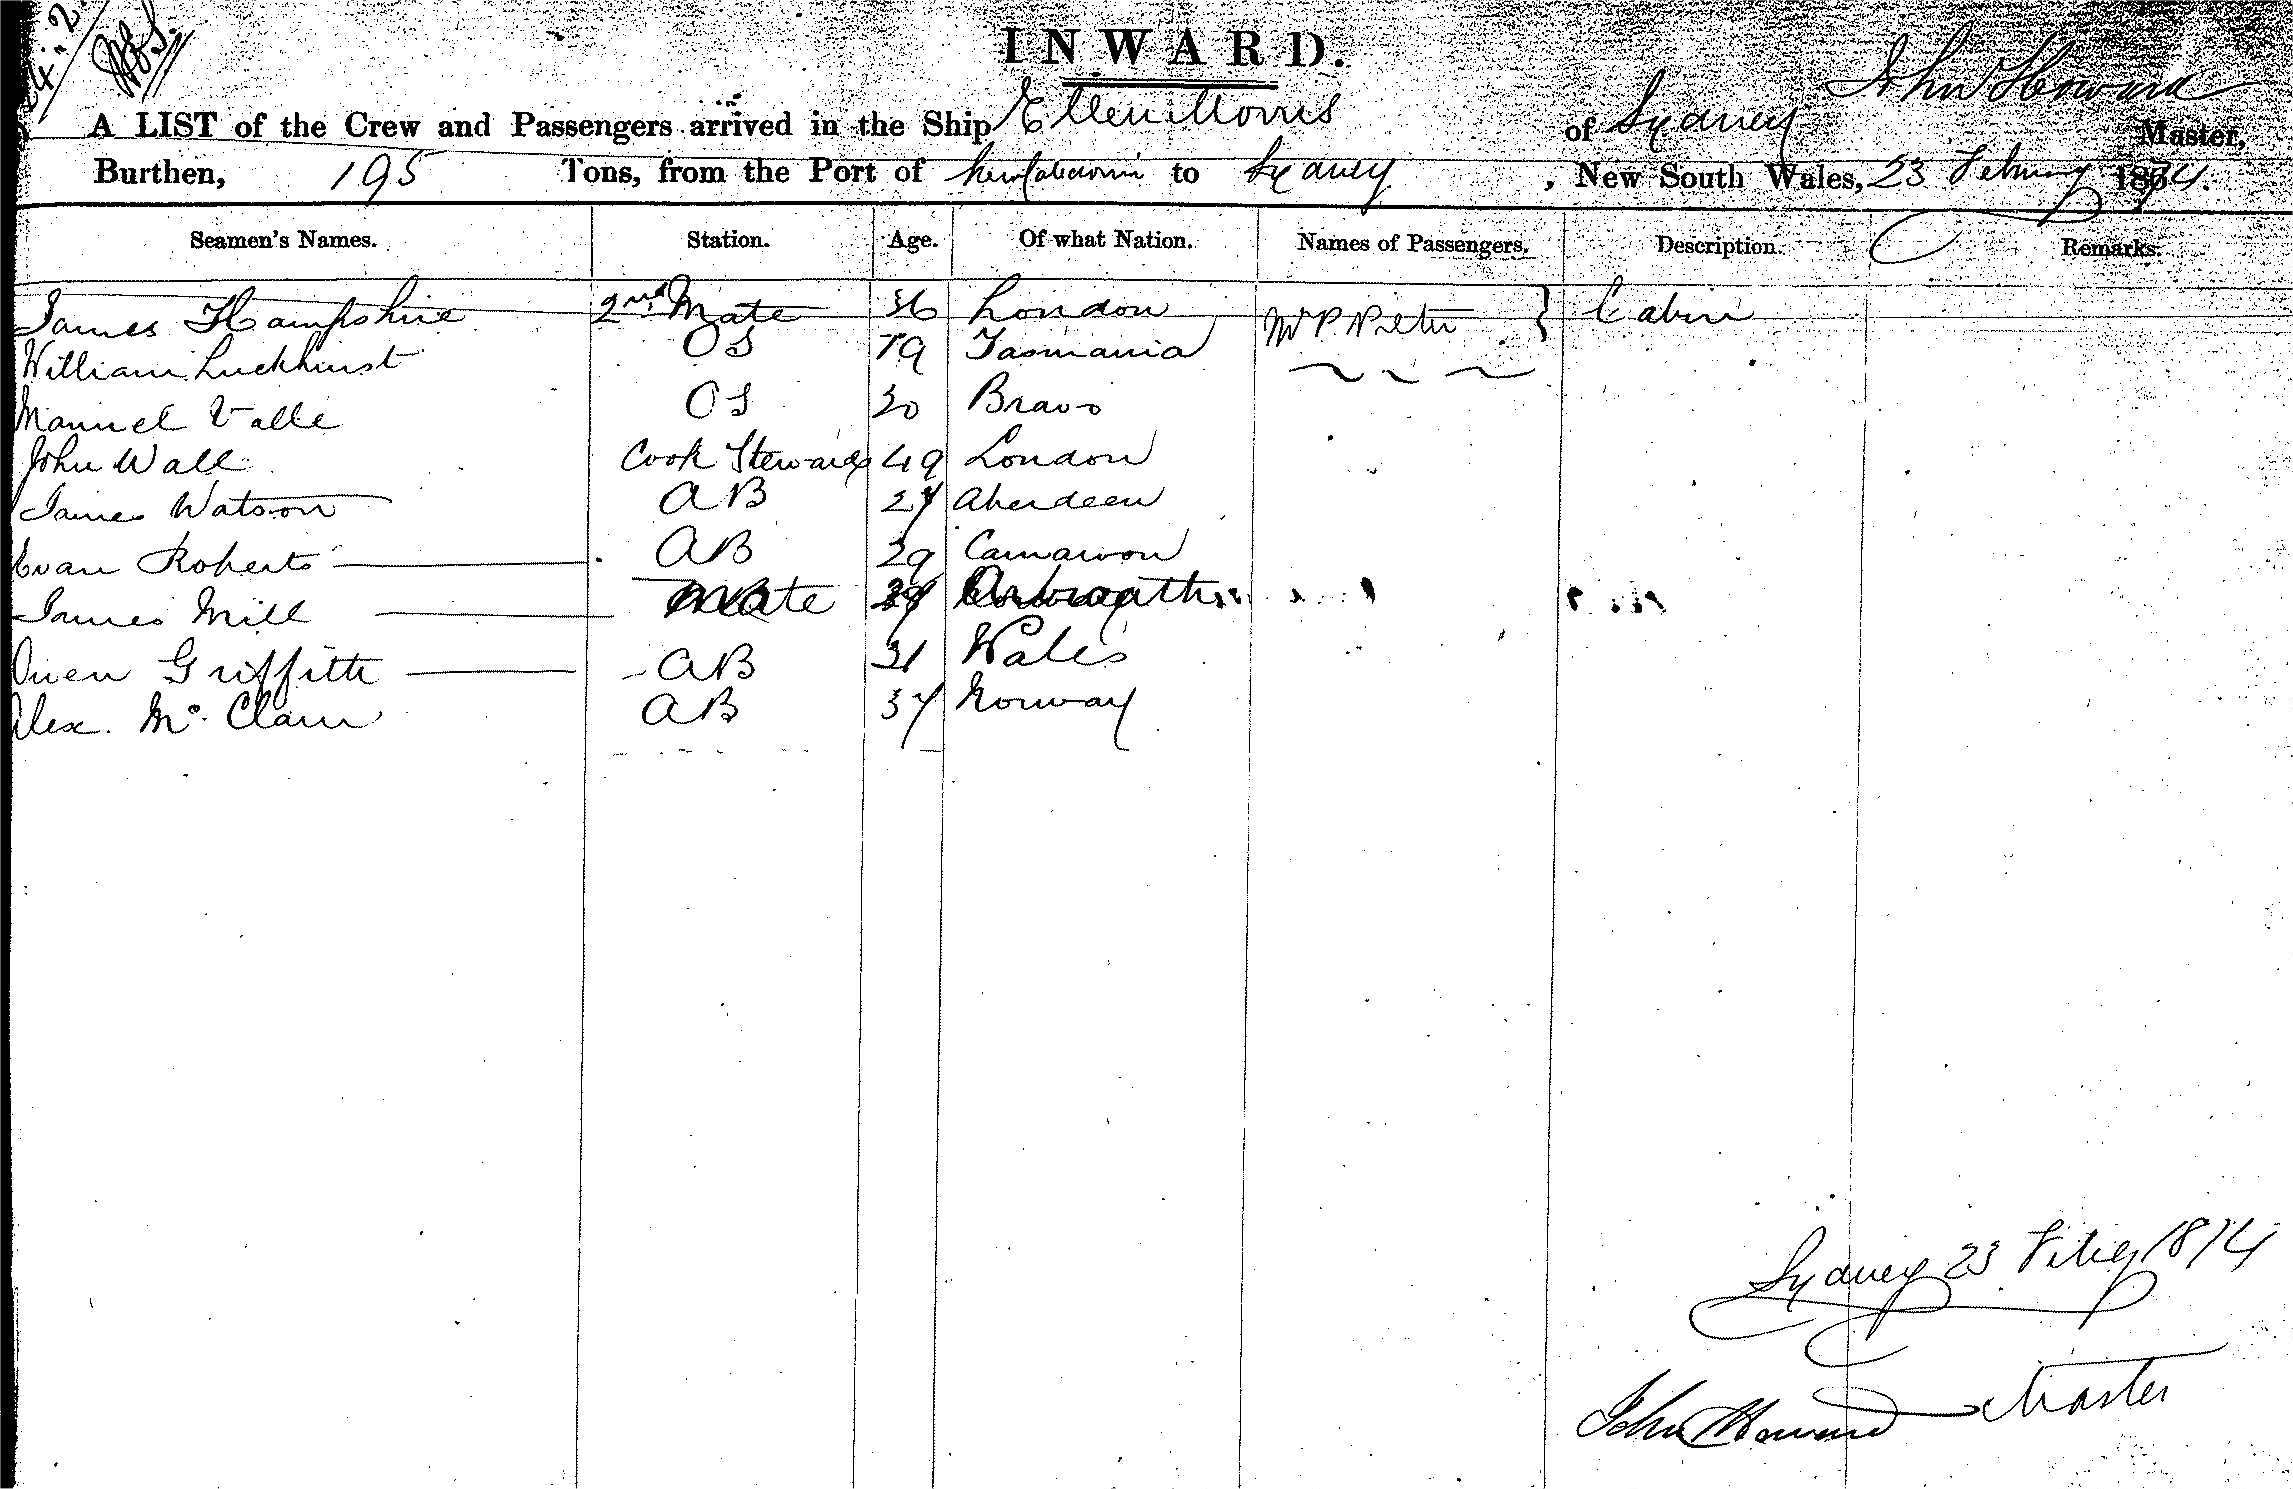 INWARD.
A LIST of the Crew and Passengers arrived in the Ship Ellen Morris of Sydney John Howard Master,
Burthen, 195 Tons, from the Port of New Caledonia to Sydney, New South Wales, 23 February 1874.
Seamen's Names. Station. Age. Of what Nation. Names of Passengers. Description. Remarks.
James Hampshire 2nd Mate 36 London Mr P. Cabin
William Luckhurst OS 19 Tasmania
Manuel Valle OS 30 Bravo
John Wall Cook Steward 49 London
James Watson AB 27 Aberdeen
Evan Roberts AB 29 Carnarvon
James Mill Mate Arbroath
Owen Griffith AB 31 Wales
Alex. Mc. Clain AB 37 Norway
Sydney 23 Feby 1874
John Howard Master